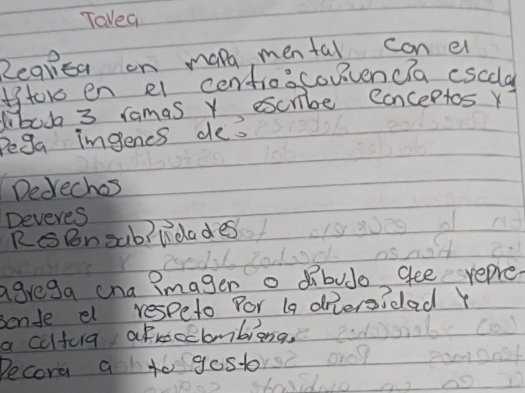 Tarea
Realiza un mapa mental con el
titulo en el centro: covivencia escola
dibuda 3 ramas y escribe conceptos y
Pega imgenes de:
Derechos
Deveres
Responsabilidades
agrega una imagen o dibudo qee repre-
sente el respeto Por la diversidad y
a cultura afrocolombiana.
Decora a tu gusto